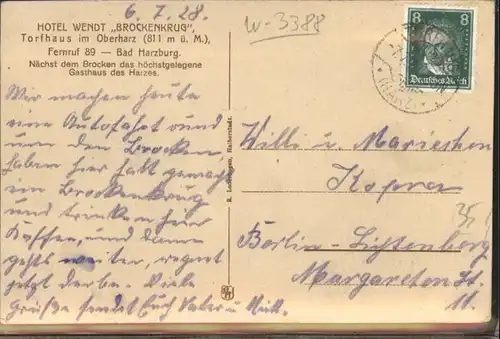 6.7.28.
W-3388
HOTEL WENDT „BROCKENKRUG",
Torfhaus im Oberharz (811 m ü. M.),
Fernruf 89 — Bad Harzburg.
Nächst dem Brocken das höchstgelegene
Gasthaus des Harzes.
8 8
Deutsches Reich
(HARZ)
Wir machen heute
eine Autofahrt rund
um den Brocken
haben hier halt gemacht
im Brockenkrug
und trinken hier
Kaffee, und dann
gehts weiter, regnet
jetzt derbe. Viele
Grüße sendet Euch Vater u. Mutt.
Halberstadt.
Willi u. Mariechen
Kopra
35
Berlin-Lichtenberg
Margareten St.
11.